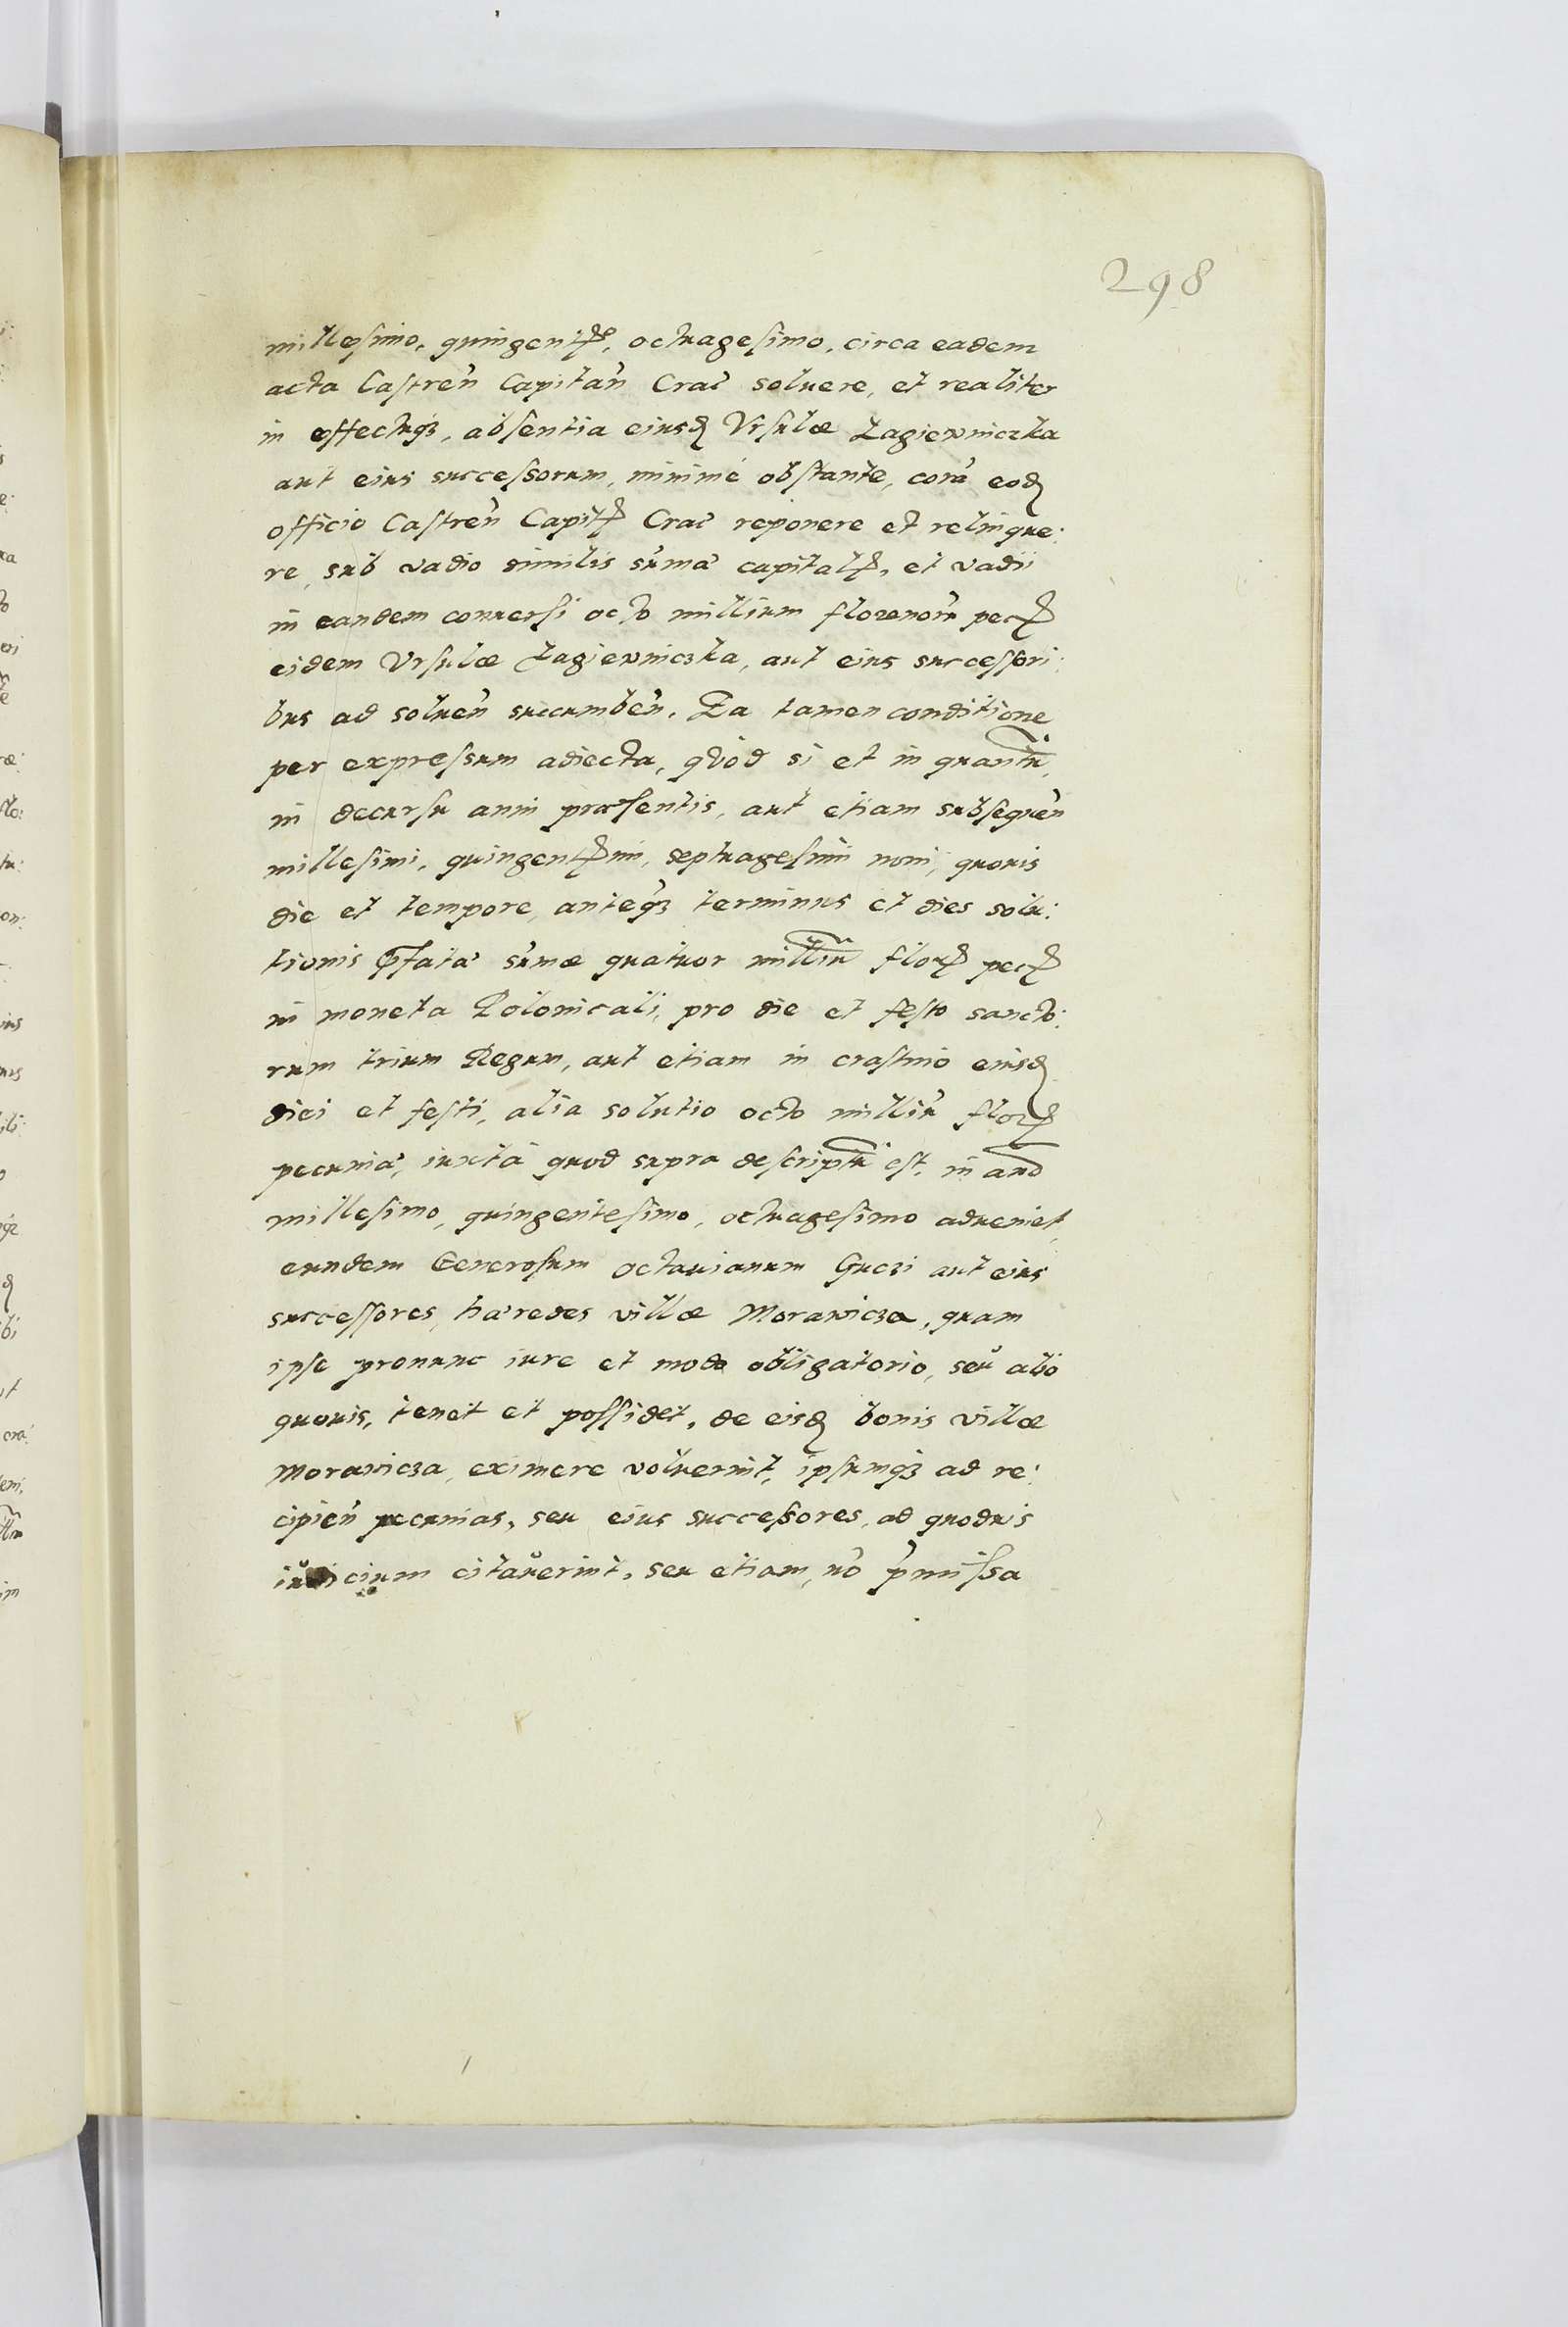 298
millesimo, quingentes̃o, octuagesimo, circa eadem
acta Castreñ Capitañ Crac̃ soluere, et realiter
in effectuq₃, absentia eiusd̃ Vrsulæ Zagiewniczka
aut eius successorum, minimé obstante, corã eod̃
officio Castreñ Capit̃ Crac̃ reponere et relinque:
re, sub vadio similis sũmæ capital̃, et vadii
in eandem conuersi octo millium florenorũ pec̃
eidem Vrsulæ Zagiewniczka, aut eius successori:
bus ad solueñ succumbeñ. Ea tamen conditione
per expressum adiecta, quòd si et in quantũ,
in decursu anni præsentis, aut etiam subsequeñ
millesimi, quingent̃mi, septuagesimi noni, quouis
die et tempore, anteq̃₃ terminus et dies solu:
tionis p̃fatæ sũmæ quatuor milliũ flor̃ pec̃
in moneta Polonicali, pro die et festo sancto:
rum trium Regum, aut etiam in crastino eiusd̃
diei et festi, alia solutio octo milliũ flor̃
pecuniæ, iuxtà quod supra descriptũ est, in anõ
millesimo, quingentesimo, octuagesimo adueniet,
eundem Generosum Octauianum Guczi aut eius
successores, hæredes villæ Morawicza, quam
ipse pronunc iure et modo obligatorio, seu alio
quouis, tenet et possidet, de eisd̃ bonis villæ
Morawicza, eximere voluerint, ipsumq₃ ad re:
cipieñ pecunias, seu eius successores, ad quoduis
iudicium citauerint, seu etiam, nõ p̃missa